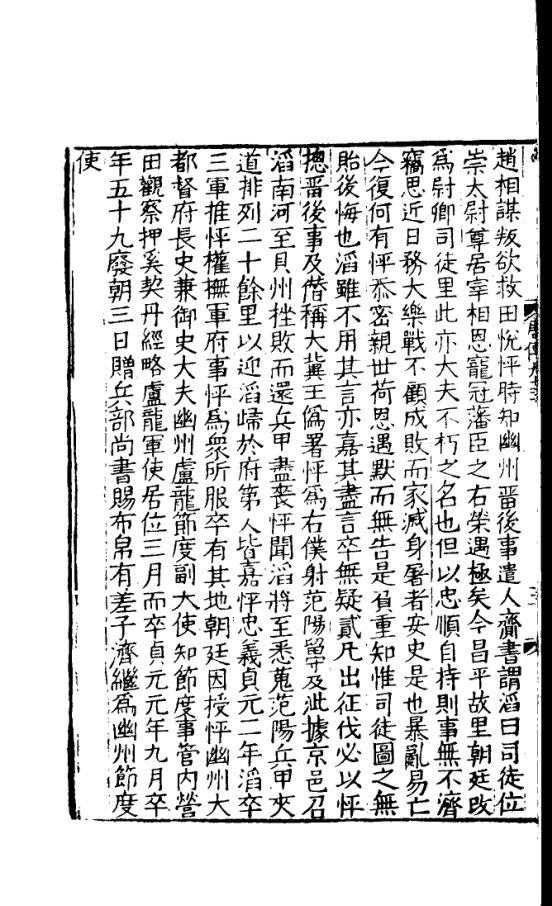 趙相謀叛欲救田悅怦時知幽州畱後事遣人齎書謂滔曰司徒位
崇太尉尊居宰相恩寵冠藩臣之右榮遇極矣今昌平故里朝廷改
爲尉卿司徒里此亦大夫不朽之名也但以忠順自持則事無不濟
竊思近日務大樂戰不顧成敗而家滅身屠者安史是也暴亂易亡
今復何有怦忝密親世荷恩遇默而無告是負重知惟司徒圖之無
貽後悔也滔雖不用其言亦嘉其盡言卒無疑貳凡出征伐必以怦
揔畱後事及僭稱大冀王僞署怦爲右僕射范陽留守及泚據京邑召
滔南河至貝州挫敗而還兵甲盡喪怦聞滔將至悉蒐范陽兵甲夾
道排列二十餘里以迎滔歸於府第人皆嘉怦忠義貞元二年滔卒
三軍推怦權撫軍府事怦爲衆所服卒有其地朝廷因授怦幽州大
都督府長史兼御史大夫幽州盧龍節度副大使知節度事管內營
田觀察押奚契丹經略盧龍軍使居位三月而卒貞元元年九月卒
年五十九廢朝三日贈兵部尚書賜布帛有差子濟繼爲幽州節度
使